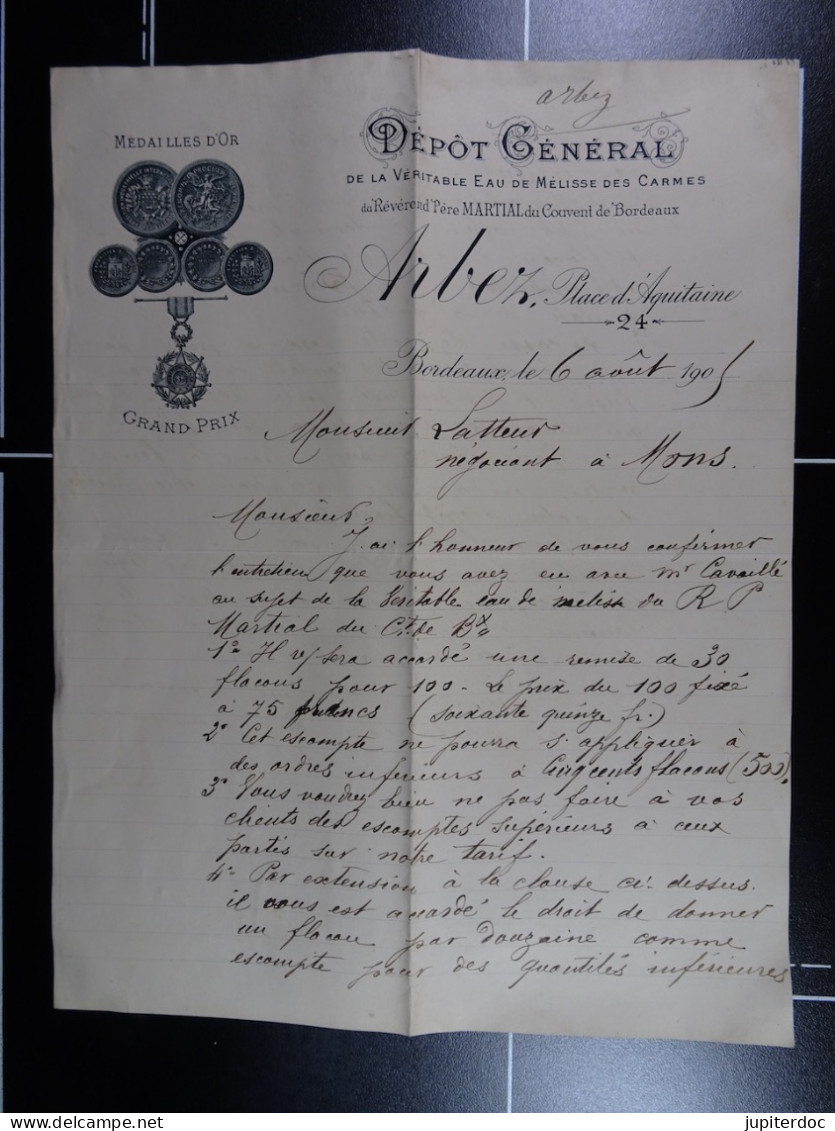 arbez
MÉDAILLES D'OR
DÉPÔT GÉNÉRAL
DE LA VÉRITABLE EAU DE MÉLISSE DES CARMES
du Révérend Père MARTIAL du Couvent de Bordeaux
Arbez, Place d'Aquitaine
24
GRAND PRIX
Bordeaux, le 6 août 1905
Monsieur Latteur
négociant à Mons.
Monsieur,
J'ai l'honneur de vous confirmer
l'entretien que vous avez eu avec Mr Cavaillé
au sujet de la Véritable eau de mélisse du R P
Martial du Ct. de Bx
1° Il v/ sera accordé une remise de 30
flacons pour 100 - Le prix du 100 fixé
à 75 francs (soixante quinze fr.)
2° Cet escompte ne pourra s'appliquer à
des ordres inférieurs à Cinq cents flacons (500).
3° Vous voudrez bien ne pas faire à vos
clients des escomptes supérieurs à ceux
portés sur notre tarif.
4° Par extension à la clause ci-dessus
il vous est accordé le droit de donner
un flacon par douzaine comme
escompte pour des quantités inférieures
jupiterdoc
delcampe.net